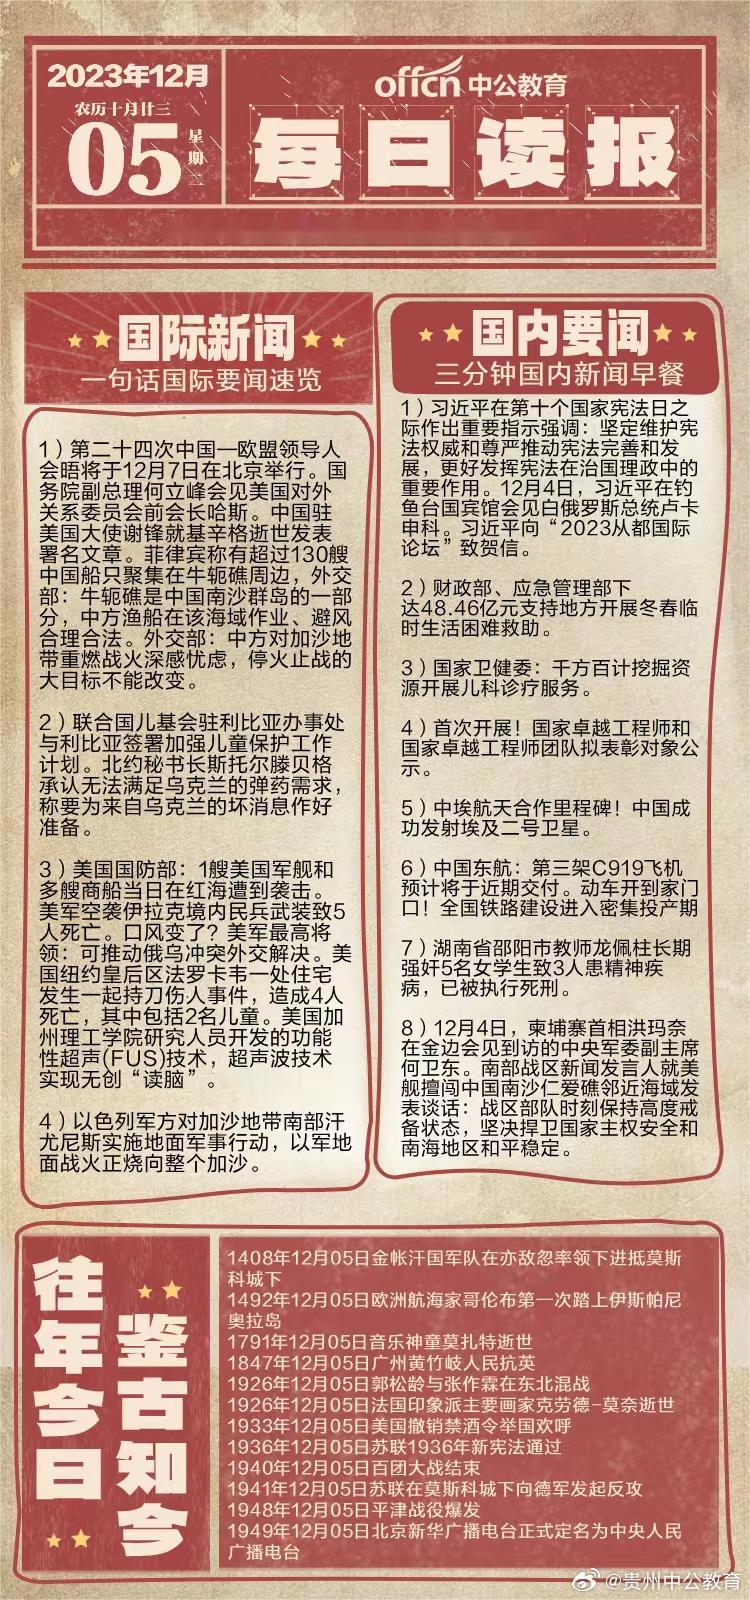 2023年12月
农历十月廿三
05
星期二
offcn中公教育
每日读报
国际新闻
一句话国际要闻速览
1）第二十四次中国—欧盟领导人
会晤将于12月7日在北京举行。国
务院副总理何立峰会见美国对外
关系委员会前会长哈斯。中国驻
美国大使谢锋就基辛格逝世发表
署名文章。菲律宾称有超过130艘
中国船只聚集在牛轭礁周边，外交
部：牛轭礁是中国南沙群岛的一部
分，中方渔船在该海域作业、避风
合理合法。外交部：中方对加沙地
带重燃战火深感忧虑，停火止战的
大目标不能改变。
2）联合国儿基会驻利比亚办事处
与利比亚签署加强儿童保护工作
计划。北约秘书长斯托尔滕贝格
承认无法满足乌克兰的弹药需求，
称要为来自乌克兰的坏消息作好
准备。
3）美国国防部：1艘美国军舰和
多艘商船当日在红海遭到袭击。
美军空袭伊拉克境内民兵武装致5
人死亡。口风变了？美军最高将
领：可推动俄乌冲突外交解决。美
国纽约皇后区法罗卡韦一处住宅
发生一起持刀伤人事件，造成4人
死亡，其中包括2名儿童。美国加
州理工学院研究人员开发的功能
性超声(FUS)技术，超声波技术
实现无创“读脑”。
4）以色列军方对加沙地带南部汗
尤尼斯实施地面军事行动，以军地
面战火正烧向整个加沙。
国内要闻
三分钟国内新闻早餐
1）习近平在第十个国家宪法日之
际作出重要指示强调：坚定维护宪
法权威和尊严推动宪法完善和发
展，更好发挥宪法在治国理政中的
重要作用。12月4日，习近平在钓
鱼台国宾馆会见白俄罗斯总统卢卡
申科。习近平向“2023从都国际
论坛”致贺信。
2）财政部、应急管理部下
达48.46亿元支持地方开展冬春临
时生活困难救助。
3）国家卫健委：千方百计挖掘资
源开展儿科诊疗服务。
4）首次开展！国家卓越工程师和
国家卓越工程师团队拟表彰对象公
示。
5）中埃航天合作里程碑！中国成
功发射埃及二号卫星。
6）中国东航：第三架C919飞机
预计将于近期交付。动车开到家门
口！全国铁路建设进入密集投产期
7）湖南省邵阳市教师龙佩柱长期
强奸5名女学生致3人患精神疾
病，已被执行死刑。
8）12月4日，柬埔寨首相洪玛奈
在金边会见到访的中央军委副主席
何卫东。南部战区新闻发言人就美
舰擅闯中国南沙仁爱礁邻近海域发
表谈话：战区部队时刻保持高度戒
备状态，坚决捍卫国家主权安全和
南海地区和平稳定。
往年今日
鉴古知今
1408年12月05日金帐汗国军队在亦敌忽率领下进抵莫斯
科城下
1492年12月05日欧洲航海家哥伦布第一次踏上伊斯帕尼
奥拉岛
1791年12月05日音乐神童莫扎特逝世
1847年12月05日广州黄竹岐人民抗英
1926年12月05日郭松龄与张作霖在东北混战
1926年12月05日法国印象派主要画家克劳德-莫奈逝世
1933年12月05日美国撤销禁酒令举国欢呼
1936年12月05日苏联1936年新宪法通过
1940年12月05日百团大战结束
1941年12月05日苏联在莫斯科城下向德军发起反攻
1948年12月05日平津战役爆发
1949年12月05日北京新华广播电台正式定名为中央人民
广播电台
@贵州中公教育